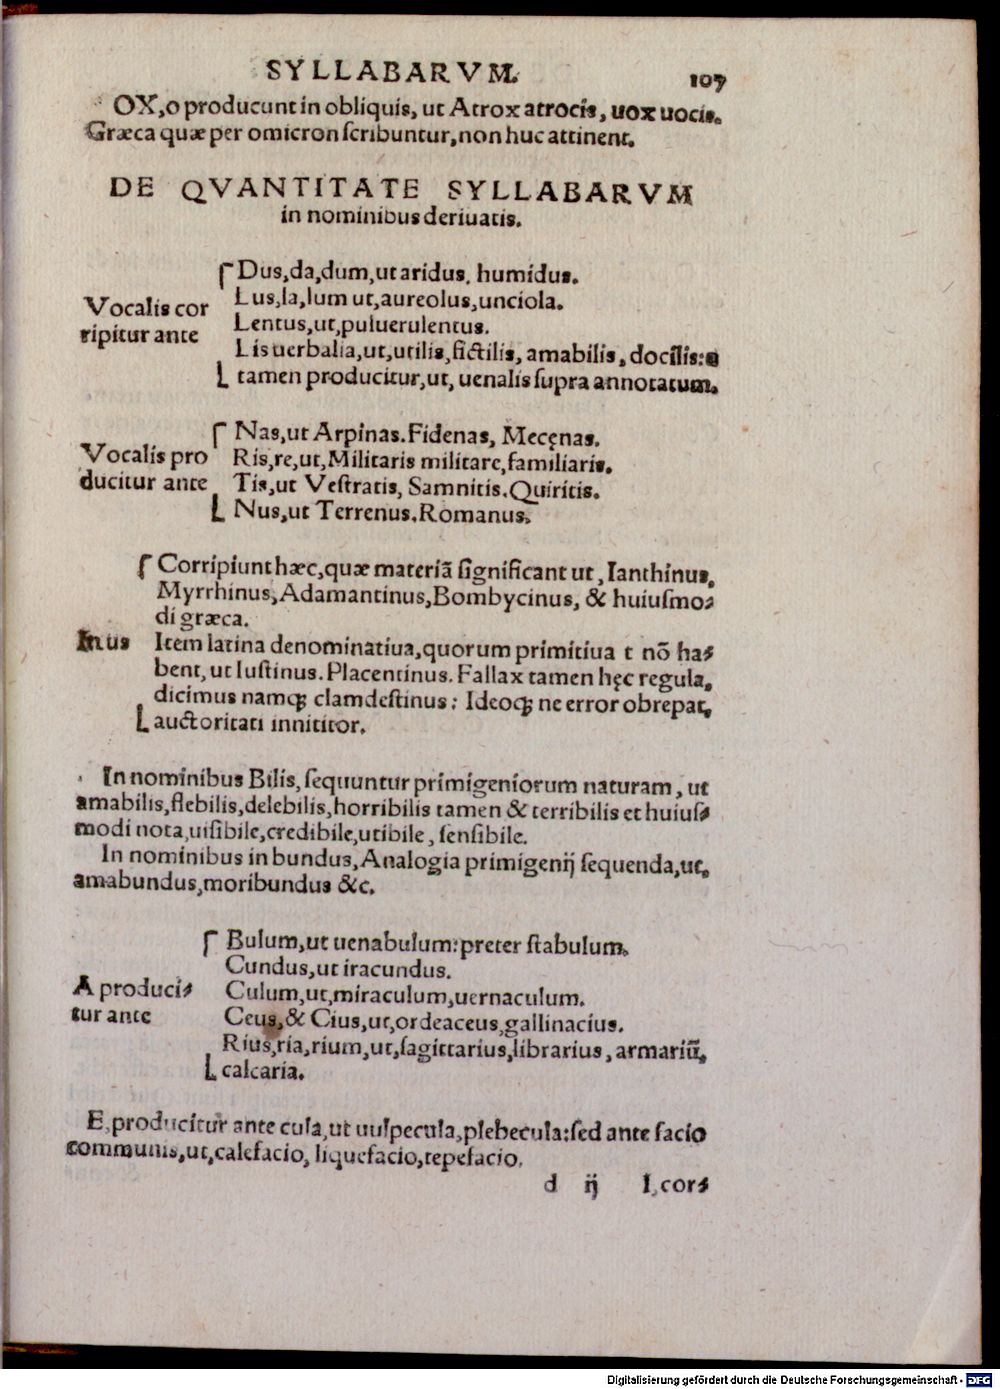 SYLLABARVM. 107
OX, o producunt in obliquis, ut Atrox atrocis, uox uocis.
Græca quæ per omicron ſcribuntur, non huc attinent.
DE QVANTITATE SYLLABARVM
in nominibus deriuatis.
Dus, da, dum, ut aridus, humidus.
Vocalis cor Lus, la, lum ut, aureolus, unciola.
ripitur ante Lentus, ut, puluerulentus.
Lis uerbalia, ut, utilis, fictilis, amabilis, docilis: a
tamen producitur, ut, uenalis ſupra annotatum.
Nas, ut Arpinas. Fidenas, Mecęnas.
Vocalis pro Ris, re, ut, Militaris militare, familiaris.
ducitur ante Tis, ut Veſtratis, Samnitis. Quiritis.
Nus, ut Terrenus. Romanus.
Corripiunt hæc, quæ materiã ſignificant ut, Ianthinus,
Myrrhinus, Adamantinus, Bombycinus, & huiuſmo⸗
di græca.
Inus Item latina denominatiua, quorum primitiua t nõ ha⸗
bent, ut Iuſtinus. Placentinus. Fallax tamen hęc regula,
dicimus namqꝫ clamdeſtinus: Ideoqꝫ ne error obrepat,
auctoritati innititor.
In nominibus Bilis, ſequuntur primigeniorum naturam, ut
amabilis, flebilis, delebilis, horribilis tamen & terribilis et huiuſ⸗
modi nota, uiſibile, credibile, utibile, ſenſibile.
In nominibus in bundus, Analogia primigenij ſequenda, ut,
amabundus, moribundus &c.
Bulum, ut uenabulum: preter ſtabulum.
Cundus, ut iracundus.
A produci⸗ Culum, ut, miraculum, uernaculum.
tur ante Ceus, & Cius, ut, ordeaceus, gallinacius.
Rius, ria, rium, ut, ſagittarius, librarius, armariũ,
calcaria.
E, producitur ante cula, ut uulpecula, plebecula: ſed ante facio
communis, ut, calefacio, liquefacio, tepefacio.
d ij I, cor⸗
Digitalisierung gefördert durch die Deutsche Forschungsgemeinschaft - DFG